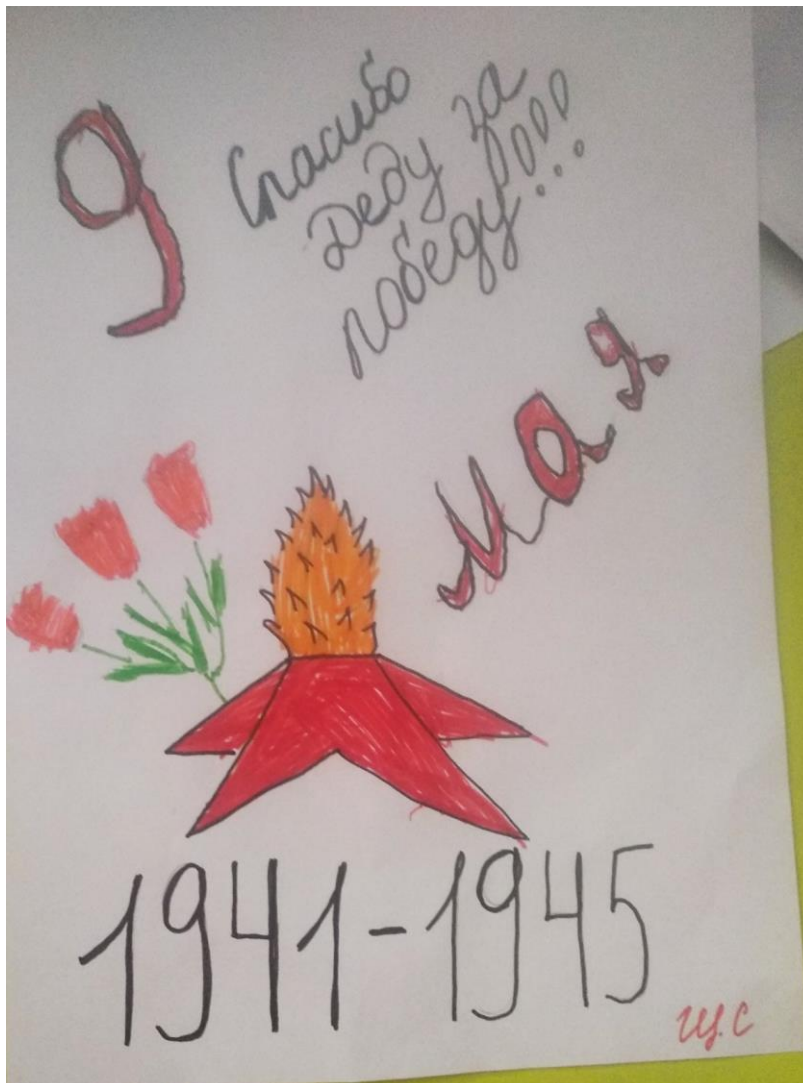 9
Спасибо
Деду за
победу!!!!
Мая
1941-1945
Щ.С